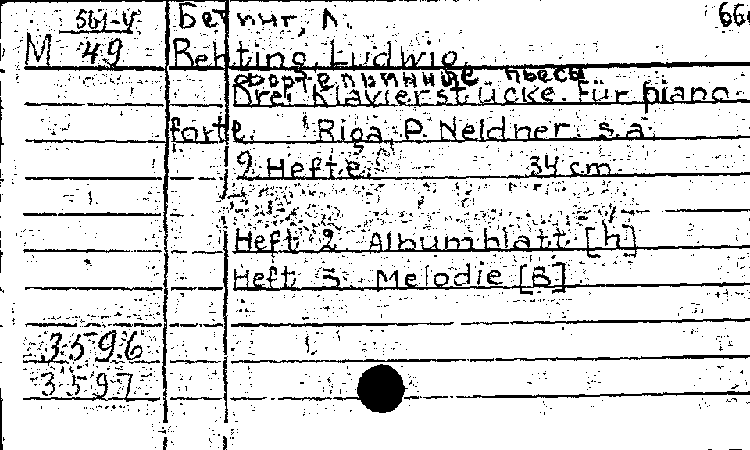 561-4 Бетинг, Л. 66
M 49 Behting, Ludwig.
Фортепианные пьесы
Drei Klavierstücke. Für piano-
forte. Riga, P. Neldner. s.a.
2 Hefte 34 cm
Heft 2 Albumblatt [h]
Heft 3 Melodie [B]
3596
3597